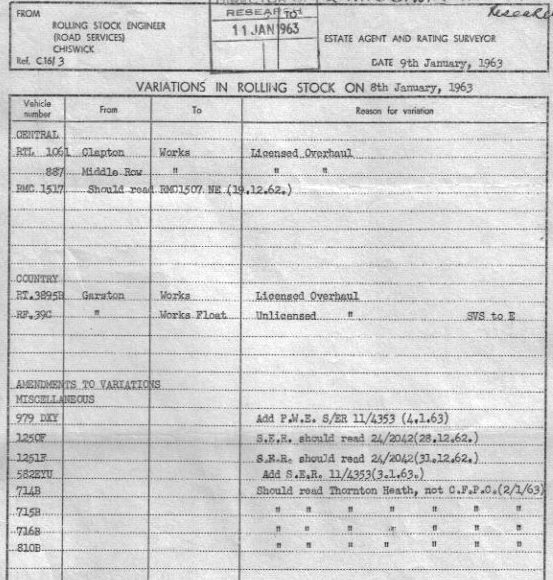 FROM
ROLLING STOCK ENGINEER
(ROAD SERVICES)
CHISWICK
Ref. C16/3
RESEARCH
TO
11 JAN 1963
ESTATE AGENT AND RATING SURVEYOR
DATE 9th January, 1963
VARIATIONS IN ROLLING STOCK ON 8th January, 1963
Vehicle number From To Reason for variation
CENTRAL
RTL 1061 Clapton Works Licensed Overhaul
887 Middle Row " " "
RMC.1517 Should read RMC1507 NE (19.12.62.)
COUNTRY
RT.3895B Garston Works Licensed Overhaul
RF.39C " Works Float Unlicensed " SVS to E
AMENDMENTS TO VARIATIONS
MISCELLANEOUS
979 DXY Add P.W.E. S/ER 11/4353 (4.1.63)
1250F S.E.R. should read 24/2042(28.12.62.)
1251F S.E.R. should read 24/2042(31.12.62.)
582EYU Add S.E.R. 11/4353(3.1.63.)
714B Should read Thornton Heath, not C.F.P.C.(2/1/63)
715B " " " " " " "
716B " " " " " " "
810B " " " " " " "